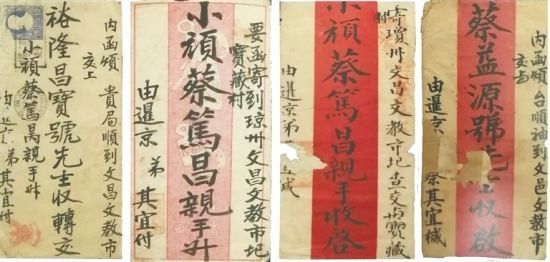 内函煩 貴局順到文昌文教市
交上
裕隆昌寶號先生收轉交
小頑蔡篤昌親手升
由 弟 其宜付
要函寄到琼州文昌文教市圯
寶藏村
小頑蔡篤昌親手升
由暹京 弟 其宜付
寄瓊州文昌文教市圯查交 寶藏
小頑蔡篤昌親手收啓
由暹京弟
内函煩 台順袖到文邑文教市
蔡益源號 生收啟
由暹京 蔡其宜緘